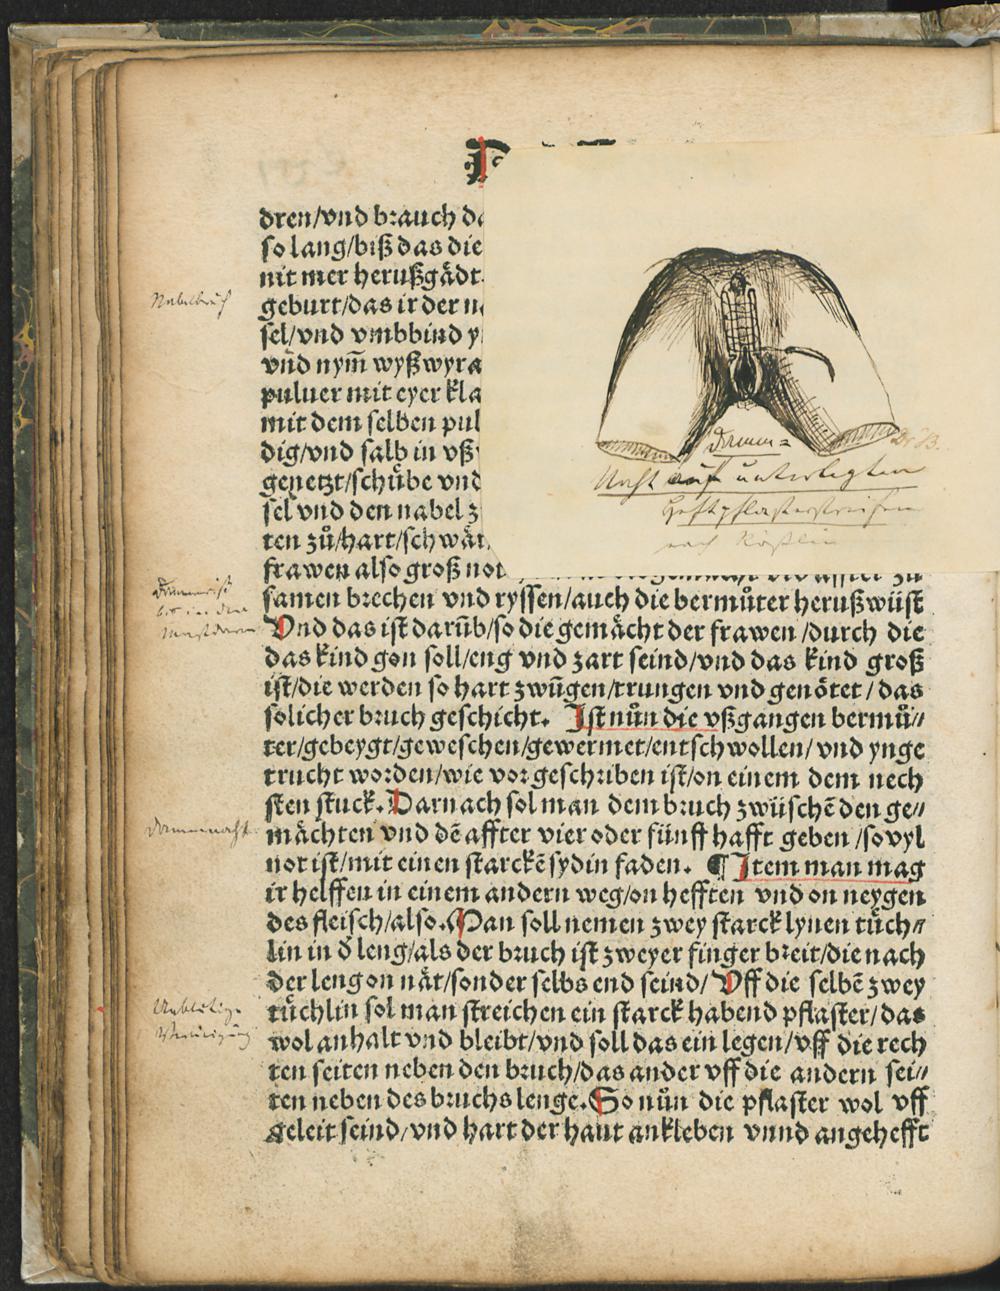 dren/vnd brauch da
so lang/biß das die
nit mer herußgådt
geburt/das ir der n
Nabelbruch
sel/vnd vmbbind y
vñd nym̃ wyß wyra
puluer mit eyer kla
mit dem selben pul
dig/vnd salb in vß
genetzt/schübe vnd
sel vnd den nabel z
ten zů/hart/schwår
frawen also groß not
Damm=
Naht auf unterlegten
Heftpflasterstreifen
nach Rößlin
Dr. B.
samen brechen vnd ryssen/auch die bermůter herußwüst
Dammriß
bis in den
Mastdarm
Vnd das ist darüb/so die gemåcht der frawen /durch die
das kind gon soll/eng vnd zart seind/vnd das kind groß
ist/die werden so hart zwũgen/trungen vnd genötet / das
solicher bruch geschicht. Ist nůn die vßgangen bermů//
ter/gebeygt/geweschen/gewermet/entschwollen/ vnd ynge
trucht worden/wie vor geschriben ist/on einem dem nech
sten stuck. Darnach sol man dem bruch zwüschē den ge//
Dammnaht
måchten vnd dē affter vier oder fünff hafft geben /so vyl
not ist/mit einen starckē sydin faden. ¶ Item man mag
ir helffen in einem andern weg/on hefften vnd on neygen
des fleisch/also. Man soll nemen zwey starck lynen tüch//
lin in d̓ leng/als der bruch ist zweyer finger breit/die nach
der leng on nåt/sonder selbs end seind/ Vff die selbē zwey
Unblutige
Vereinigung
tüchlin sol man streichen ein starck habend pflaster/das
wol anhalt vnd bleibt/vnd soll das ein legen/vff die rech
ten seiten neben den bruch/das ander vff die andern sei//
ten neben des bruchs lenge. So nůn die pflaster wol vff
geleit seind/vnd hart der haut ankleben vnnd angehefft